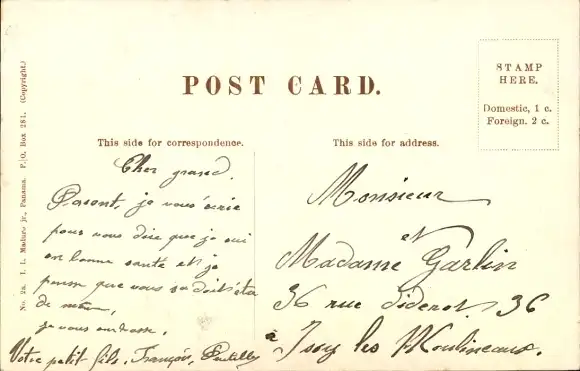 POST CARD.
STAMP
HERE.
Domestic, 1 c.
Foreign. 2 c.
No. 2a. I. L. Maduro jr., Panama. P. O. Box 281. (Copyright.)
This side for correspondence.
Cher grand.
Parent, je vous écrie
pour vous dire que je sui
en bonne sante et je
pense que vous
de même,
je vous embrasse.
Votre petit fils. François,
This side for address.
Monsieur
et
Madame Garlin
36 rue Diderot. 36
à Issy les Moulineaux.